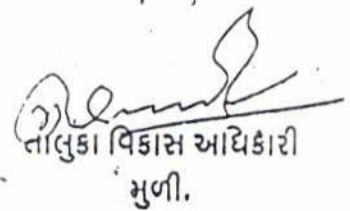 તાલુકા વિકાસ અધિકારી
મુળી.